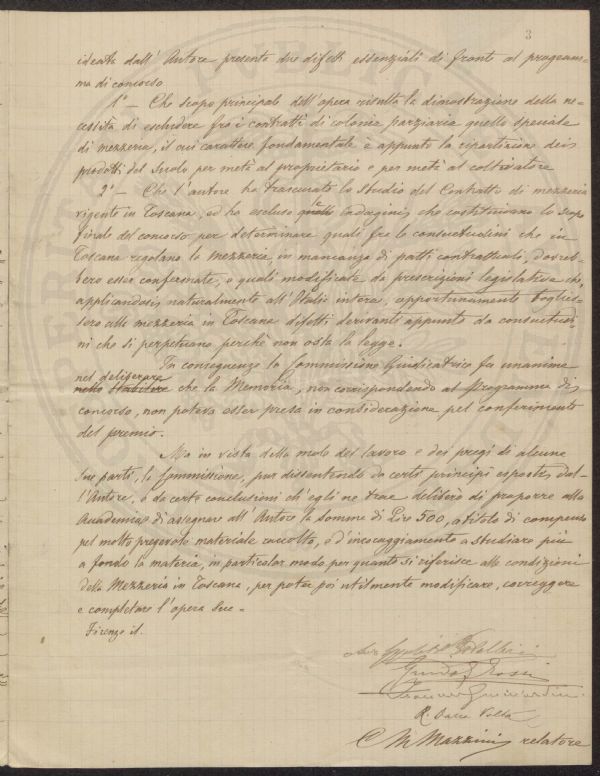 3
ideata dall'Autore presenta due difetti essenziali di fronte al program-
ma di concorso
1° — Che scopo principale dell'opera risulta la dimostrazione della ne-
cessità di escludere fra i contratti di colonia parziaria quello speciale
di mezzeria, il cui carattere fondamentale è appunto la ripartizione dei
prodotti del suolo per metà al proprietario e per metà al coltivatore
2° — Che l'autore ha trascurato lo studio del Contratto di mezzeria
vigente in Toscana, ed ha escluso le indagini, che costituivano lo scopo
finale del concorso per determinare quali fra le consuetudini che in
Toscana regolano la mezzeria, in mancanza di patti contrattuali, dovreb-
bero esser confermate, e quali modificate da prescrizioni legislative che,
applicandosi naturalmente all'Italia intera, opportunamente toglies-
sero alla mezzeria in Toscana difetti derivanti appunto da consuetudi-
ni che si perpetuano perchè non osta la legge.
In conseguenza la Commissione Giudicatrice fu unanime
nel deliberare
nello stabilire che la Memoria, non corrispondendo al Programma di
concorso, non poteva esser presa in considerazione pel conferimento
del premio.
Ma in vista della mole del lavoro e dei pregi di alcune
sue parti, la Commissione, pur dissentendo da certi principi esposti dal-
l'Autore, e da certe conclusioni ch'egli ne trae deliberò di proporre alla
Accademia di assegnare all'Autore la somma di Lire 500, a titolo di compenso
pel molto pregevole materiale raccolto, e d'incoraggiamento a studiare più
a fondo la materia, in particolar modo per quanto si riferisce alle condizioni
della Mezzeria in Toscana, per poter poi utilmente modificare, correggere
e completare l'opera sua —
Firenze il.
R. Dalla Volta
C M Mazzini relatore